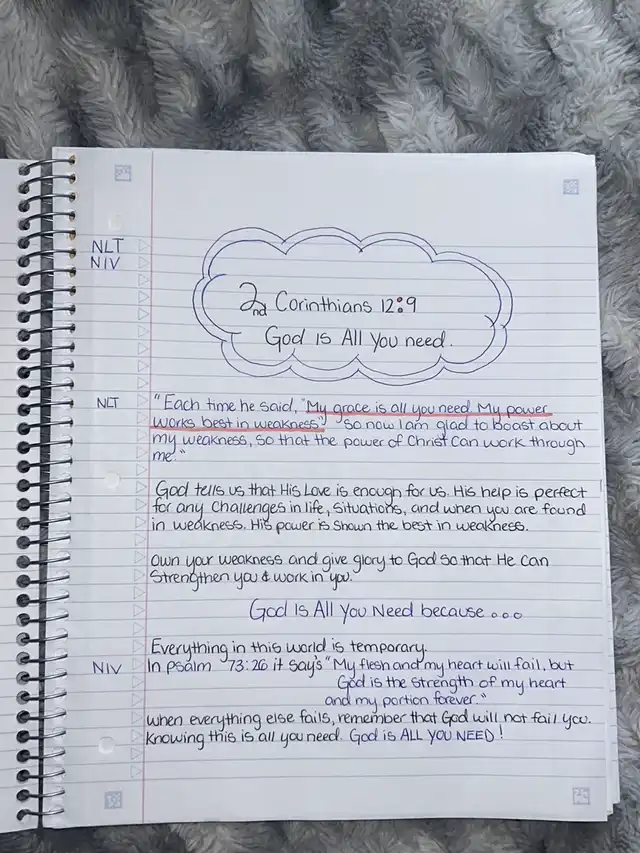 NLT
NIV
2nd Corinthians 12:9
God Is All You need.
NLT
"Each time he said, "My grace is all you need. My power
works best in weakness." So now I am glad to boast about
my weakness, so that the power of Christ Can work through
me."
God tells us that His Love is enough for us. His help is perfect
for any Challenges in life, situations, and when you are found
in weakness. His power is shown the best in weakness.
Own your weakness and give glory to God so that He Can
Strengthen you & work in you."
God Is All You Need because...
Everything in this world is temporary.
NIV
In psalm 73:26 it say's "My flesh and my heart will fail, but
God is the strength of my heart
and my portion forever."
when everything else fails, remember that God will not fail you.
Knowing this is all you need. God is ALL YOU NEED!